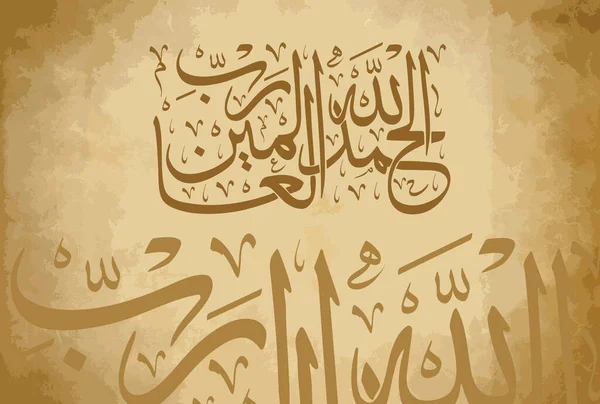 الحمد لله رب العالمين
الله رب